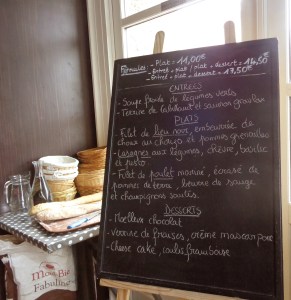 Formules - Plat = 11,00€
- Entrée + plat / plat + dessert = 14,50€
- Entrée + plat + dessert = 17,50€
ENTREES
- Soupe froide de légumes verts
- Terrine de cabillaud et saumon gravlax
PLATS
- Filet de lieu noir, embeurrée de
choux aux chorizo et pommes grenailles
- Lasagnes aux légumes, chèvre, basilic
et pesto
- Filet de poulet mariné, écrasé de
pommes de terre, beurre de rouge
et champignons sautés.
DESSERTS
- Moelleux chocolat
- Verrine de fraises, crème mascarpone
- Cheese cake, coulis framboise